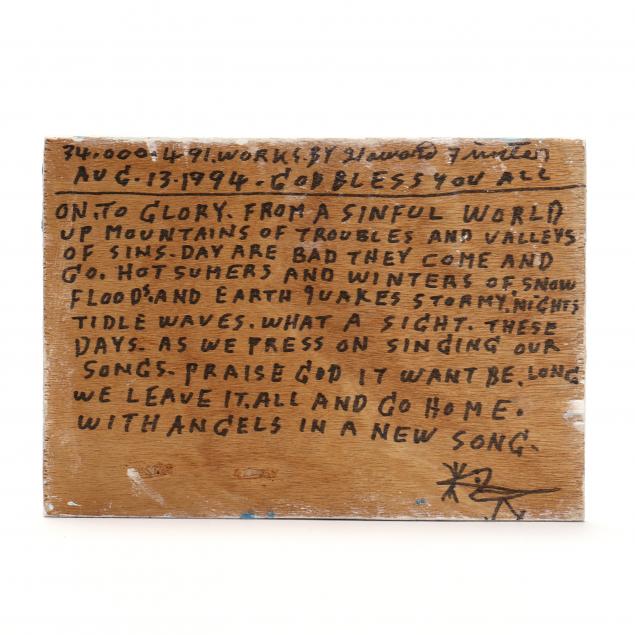 34.000.491.WORKS.BY Howard Finster
AUG.13.1994.GOD BLESS YOU ALL
ON.TO GLORY. FROM A SINFUL WORLD
UP MOUNTAINS OF TROUBLES AND VALLEYS
OF SINS-DAY ARE BAD THEY COME AND
GO. HOT SUMERS AND WINTERS OF SNOW
FLOODS.AND EARTH QUAKES STORMY.NIGHTS
TIDLE WAVES.WHAT A SIGHT. THESE
DAYS. AS WE PRESS ON SINGING OUR
SONGS-PRAISE GOD IT WANT BE.LONG
WE LEAVE IT.ALL AND GO HOME.
WITH ANGELS IN A NEW SONG-